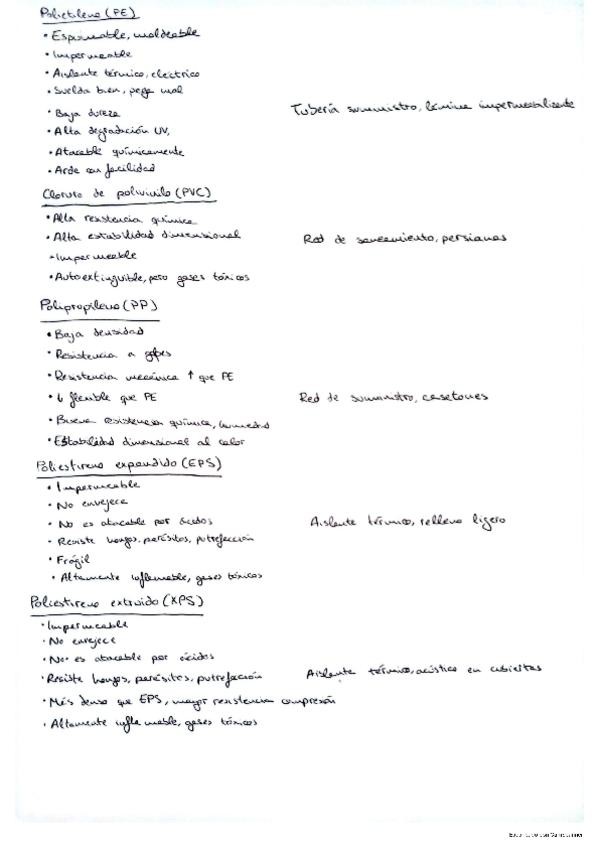 Polietileno (PE)
• Espumable, moldeable
• Impermeable
• Aislante térmico, eléctrico
• Suelda bien, pega mal
• Baja dureza
Tubería suministro, lámina impermeabilizante
• Alta degradación UV,
• Atacable químicamente
• Arde con facilidad
Cloruro de polivinilo (PVC)
• Alta resistencia química
• Alta estabilidad dimensional
Red de saneamiento, persianas
• Impermeable
• Autoextinguible, pero gases tóxicos
Polipropileno (PP)
• Baja densidad
• Resistencia a golpes
• Resistencia mecánica ↑ que PE
• flexible que PE
Red de suministro, casetones
• Buena resistencia química, humedad
• Estabilidad dimensional al calor
Poliestireno expandido (EPS)
• Impermeable
• No envejece
• No es atacable por ácidos
Aislante térmico, relleno ligero
• Resiste hongos, parásitos, putrefacción
• Frágil
• Altamente inflamable, gases tóxicos
Poliestireno extruido (XPS)
• Impermeable
• No envejece
• No es atacable por ácidos
• Resiste hongos, parásitos, putrefacción
Aislante térmico, acústico en cubiertas
• Más denso que EPS, mayor resistencia compresión
• Altamente inflamable, gases tóxicos